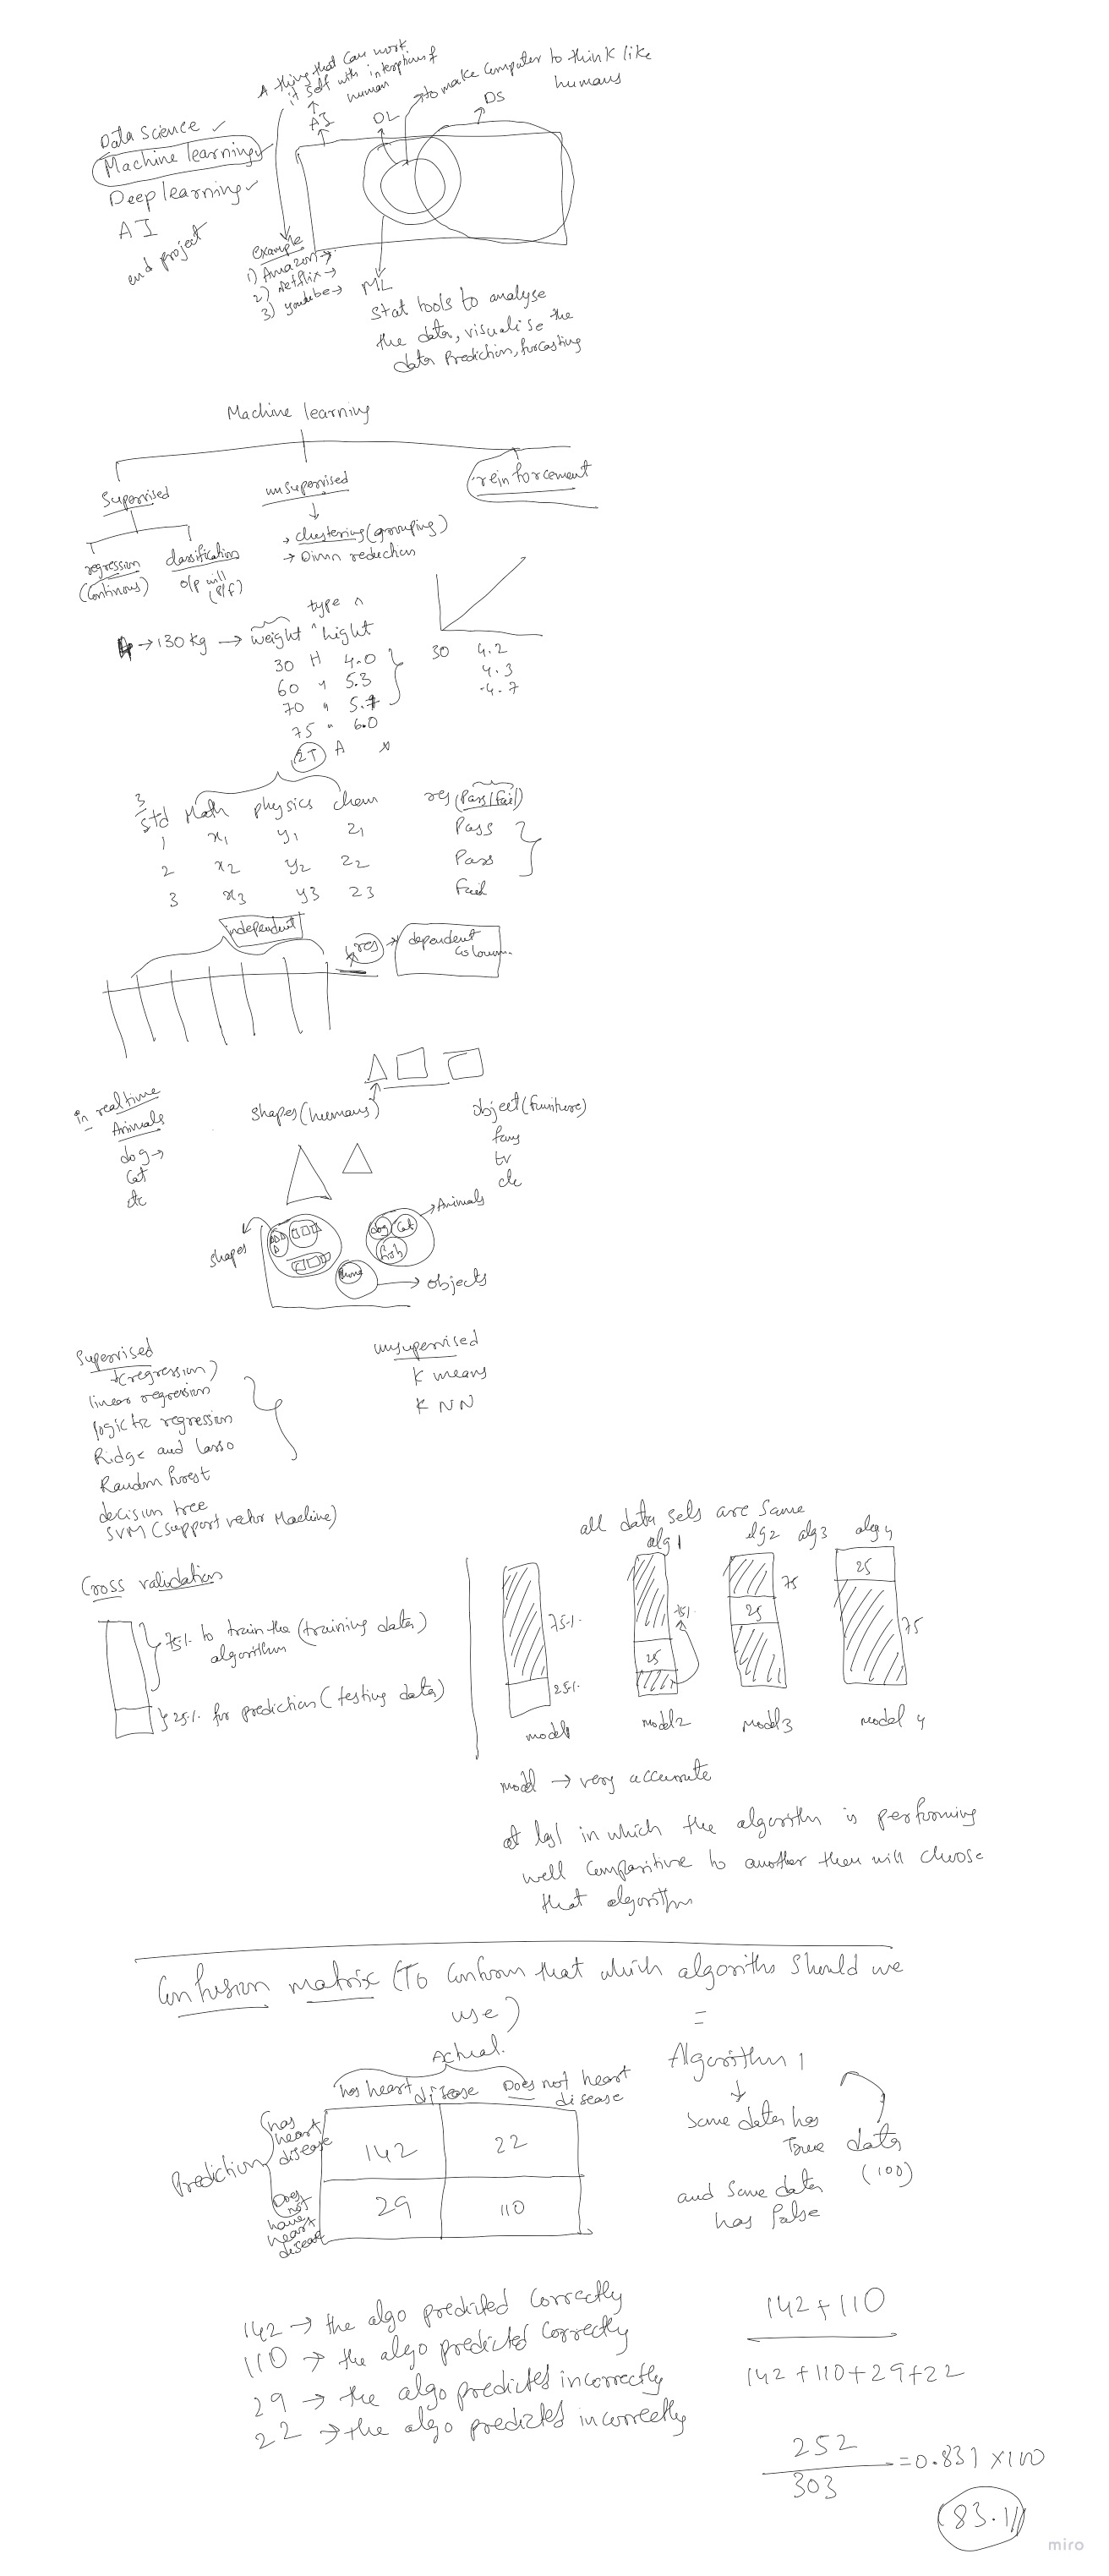 A thing that can work
it self with interption of
human
to make computer to think like
humans
AI
DL
DS
Data Science
Machine learning
Deep learning
AI
end project
example
1) Amazon
2) netflix
3) youtube
ML
Stat tools to analyse
the data, visualise the
data Prediction, forcasting
Machine learning
Supervised
unsupervised
reinforcement
regression
(continous)
classification
o/p will
(P/F)
clustering (grouping)
Dimn reduction
type
130 kg → weight hight
30 H 4.0
60 " 5.3
70 " 5.7
75 " 6.0
2T A
30 4.2
4.3
4.7
3
std Math physics chem res (Pass/Fail)
1 x1 y1 z1 Pass
2 x2 y2 z2 Pass
3 x3 y3 z3 Fail
independent
res → dependent
column
in realtime
Animals
dog →
Cat
etc
shapes (humans)
object (furniture)
fans
tv
etc
shapes
dog
Cat
Animals
objects
Supervised
(regression)
linear regression
logictic regression
Ridge and lasso
Random forest
decision tree
SVM (Support vector Machine)
unsupervised
K means
K NN
Cross validation
75% to train the (training data)
algorithm
25% for prediction (testing data)
all data sets are same
alg1 alg2 alg3 alg4
75%
25%
75%
25
75
25
25
75
model1 model2 model3 model 4
model → very accurate
at last in which the algorithm is performing
well comparitive to another then will choose
that algorithm
Confusion matrix (To Conform that which algorithm should we
use)
Actual
has heart disease
Does not heart
disease
Prediction
has
heart
disease
142 22
Does
not
have
heart
disease
29 110
Algorithm 1
Same data has
True data
(100)
and Some data
has false
142 → the algo predicted correctly
110 → the algo predicted correctly
29 → the algo predicted incorrectly
22 → the algo predicted incorrectly
142+110
142+110+29+22
252
303
=0.831 x100
83.1%
miro